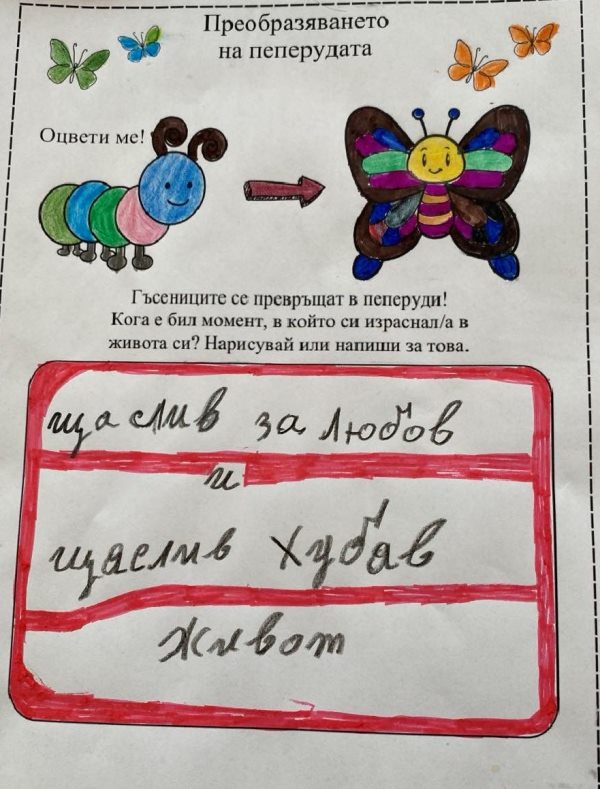 Преобразяването
на пеперудата
Оцвети ме!
Гъсениците се превръщат в пеперуди!
Кога е бил момент, в който си израснал/а в
живота си? Нарисувай или напиши за това.
щаслив за любов
и
щаслив хубав
живот